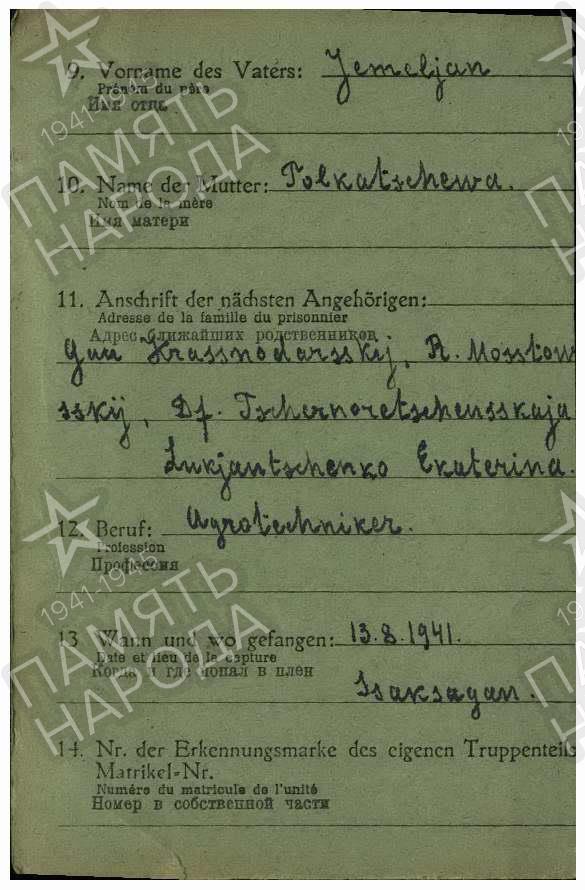 9. Vorname des Vaters: Jemeljan
Prénom du père
Имя отца
10. Name der Mutter: Tolkatschewa.
Nom de la mère
Имя матери
11. Anschrift der nächsten Angehörigen:
Adresse de la famille du prisonnier
Адрес ближайших родственников
Gau Krassnodarsskij, R. Mosstow
sskij, Df. Tschernoretschensskaja
Lukjantschenko Ekaterina.
12. Beruf: Agrotechniker.
Profession
Профессия
13. Wann und wo gefangen: 13.8.1941.
Date et lieu de la capture
Когда и где попал в плен
Isaksagan.
14. Nr. der Erkennungsmarke des eigenen Truppenteils
Matrikel-Nr.
Numéro du matricule de l'unité
Номер в собственной части
1941-1945
ПАМЯТЬ
НАРОДА
1941-1945
ПАМЯТЬ
НАРОДА